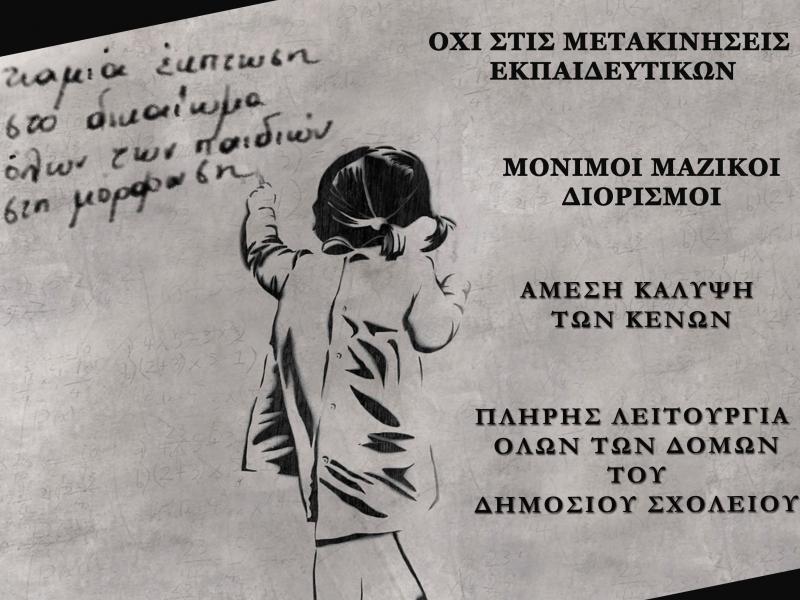 καμία έκπτωση
στο δικαίωμα
όλων των παιδιών
στη μόρφωση
ΟΧΙ ΣΤΙΣ ΜΕΤΑΚΙΝΗΣΕΙΣ
ΕΚΠΑΙΔΕΥΤΙΚΩΝ
ΜΟΝΙΜΟΙ ΜΑΖΙΚΟΙ
ΔΙΟΡΙΣΜΟΙ
ΑΜΕΣΗ ΚΑΛΥΨΗ
ΤΩΝ ΚΕΝΩΝ
ΠΛΗΡΗΣ ΛΕΙΤΟΥΡΓΙΑ
ΟΛΩΝ ΤΩΝ ΔΟΜΩΝ
ΤΟΥ
ΔΗΜΟΣΙΟΥ ΣΧΟΛΕΙΟΥ